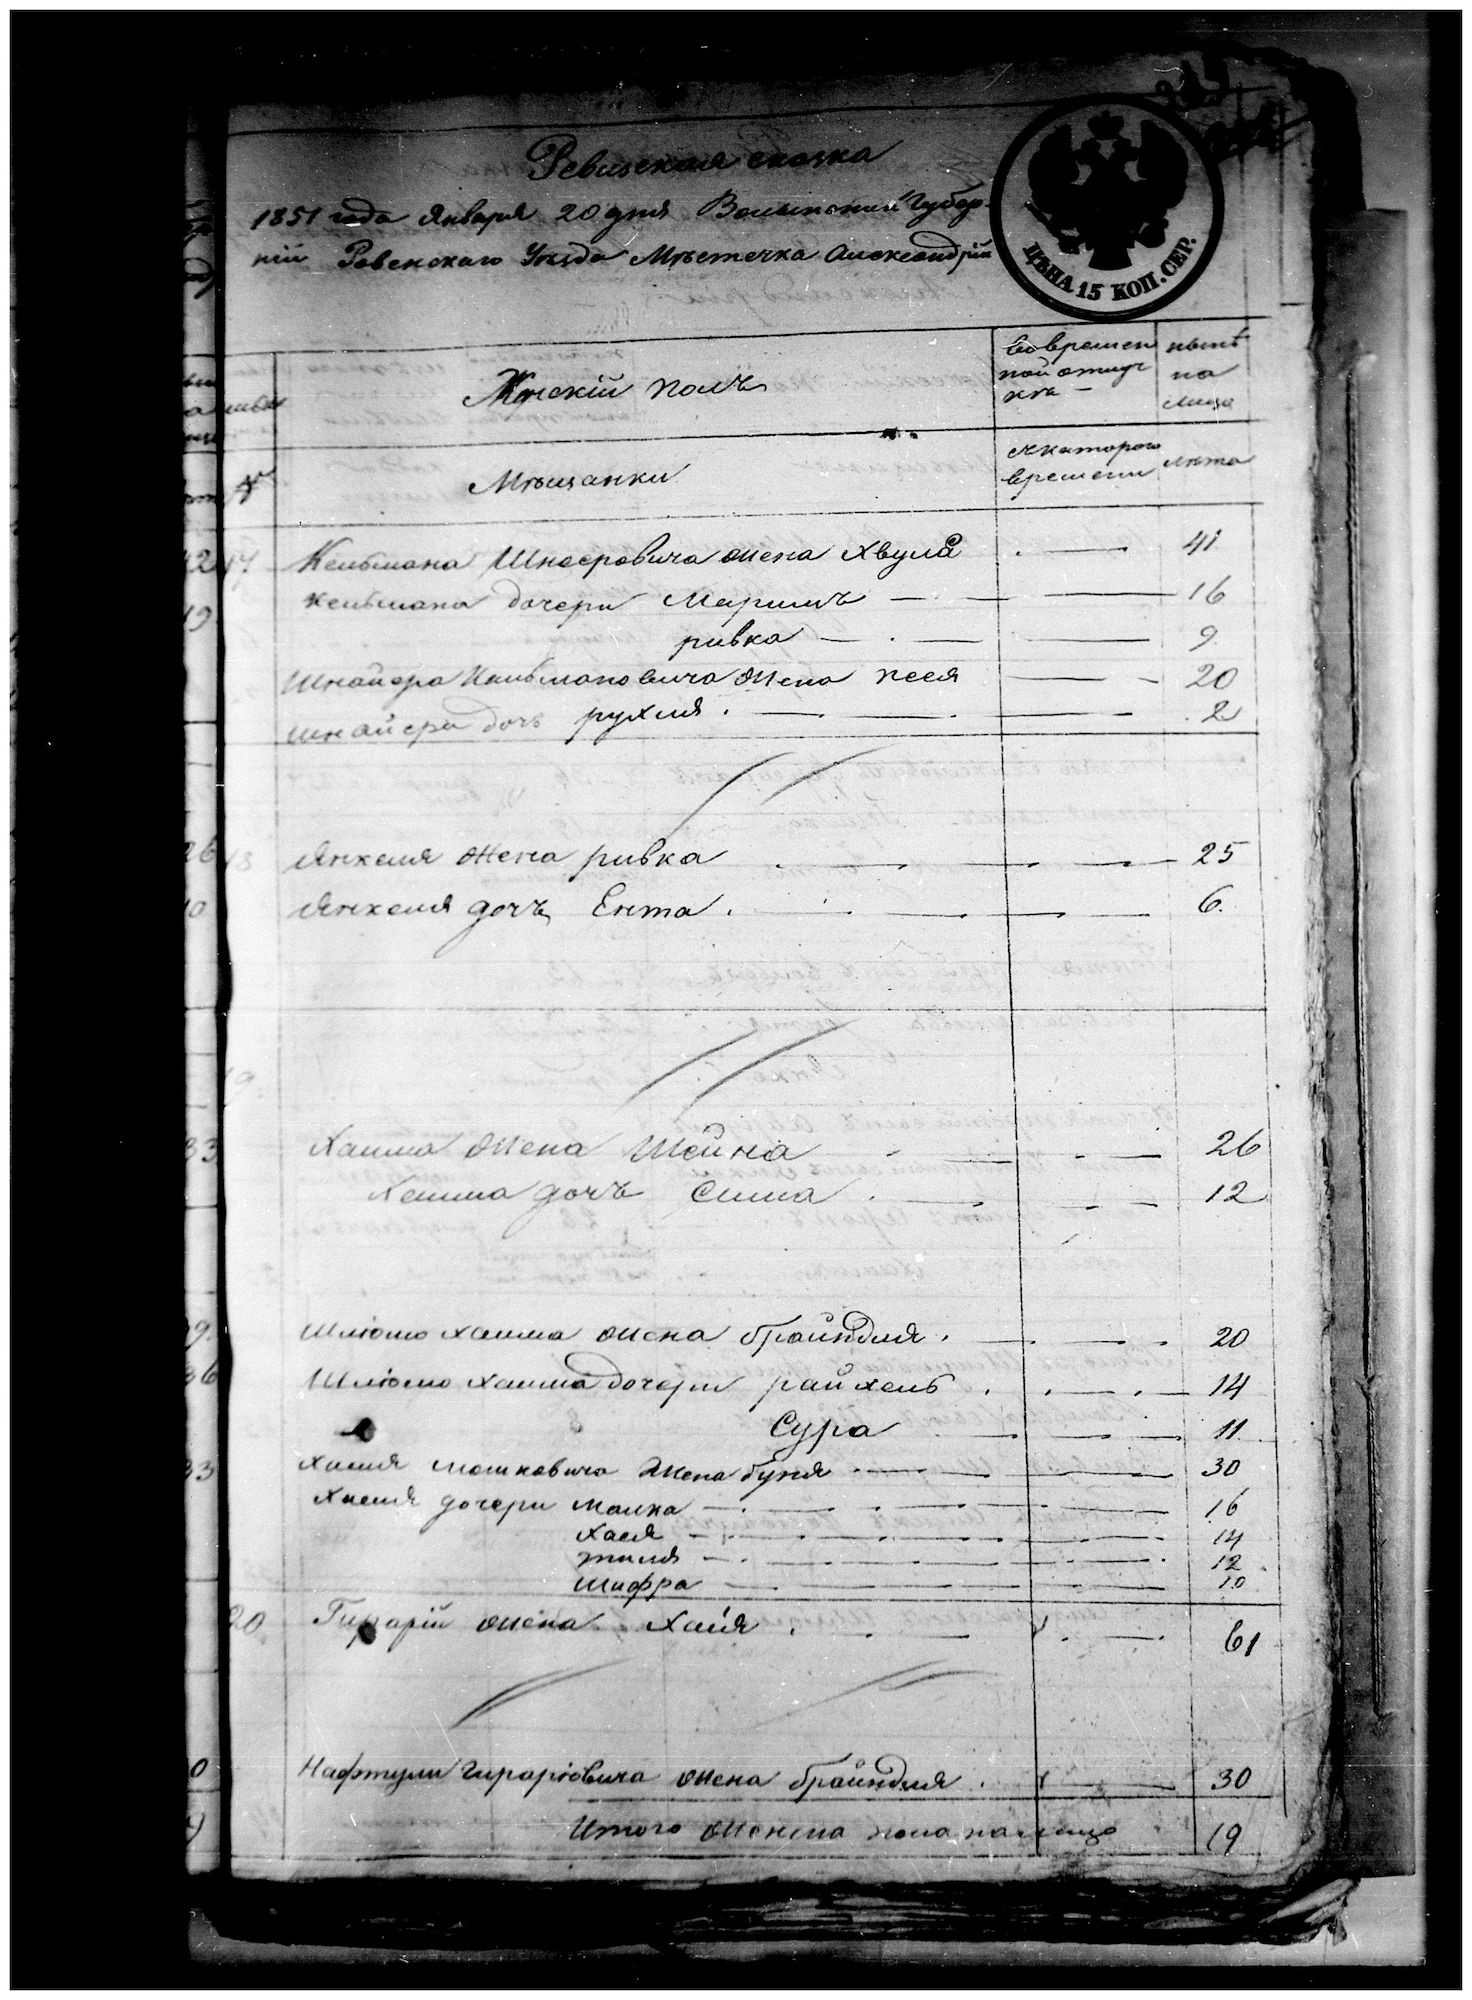 Ревизская сказка
1851 года Января 20 дня Волынской Губер-
ніи Ровенскаго Уезда Мѣстечка Александріи
ЦѢНА 15 КОП. СЕР.
Женскій полъ
Во времен
ной отлуч
кѣ —
нынѣ
на
лицо
№
Мѣщанки
Съ котораго
времени
лѣта
17 Кельмана Шнееровича жена Хвула 41
Кельмана дочери Маримъ 16
ривка 9
Шнайера Кельмановича жена песя 20
Шнайера дочь рухля 2
18 Янкеля жена ривка 25
Янкеля дочъ Ента 6
19
Хаима жена Шейна 26
Хаима дочъ Сима 12
Шліомо хаима жена брайндля 20
Шліомо хаима дочери райхель 14
Сура 11
Хаима мошковича жена буня 30
дочери малка 16
Хася 14
12
Шифра 10
20 жена Хая 61
Нафтули жена брайндля 30
Итого женска пола на лицо 19